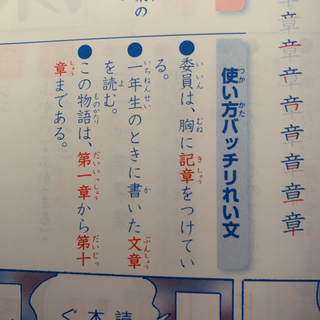 章章章章章章章
使い方バッチリれい文
●委員は、胸に記章をつけてい
る。
●一年生のときに書いた文章
を読む。
●この物語は、第一章から第十
章まである。